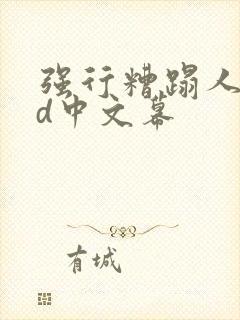 强行糟蹋人
d中文幕
有城